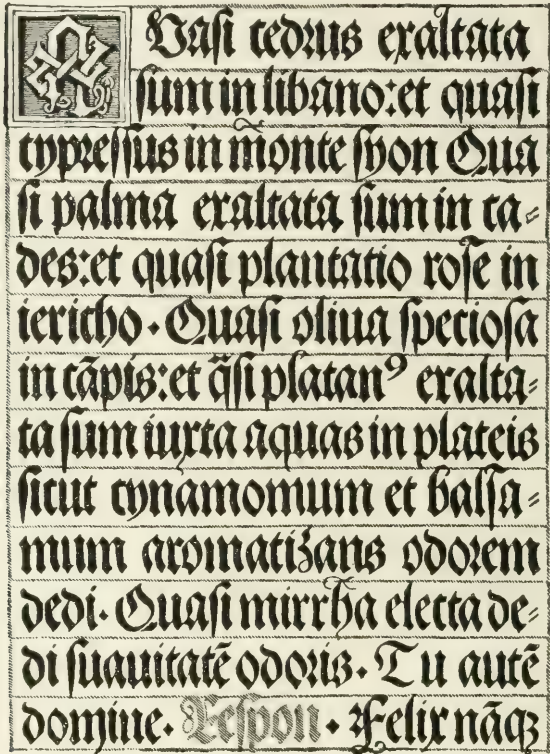 QVasi cedrus exaltata
sum in libano: et quasi
cypressus in mōnte syon Qua
si palma exaltata sum in ca⸗
des: et quasi plantatio rose in
iericho · Quasi oliua speciosa
in cāpis: et q̄si platanꝰ exalta⸗
ta sum iuxta aquas in plateis
sicut cynamomum et balsa⸗
mum aromatizans odorem
dedi · Quasi mirrha electa de⸗
di suauitatē odoris · Tu autē
domine · Respon · Felix nāqꝫ